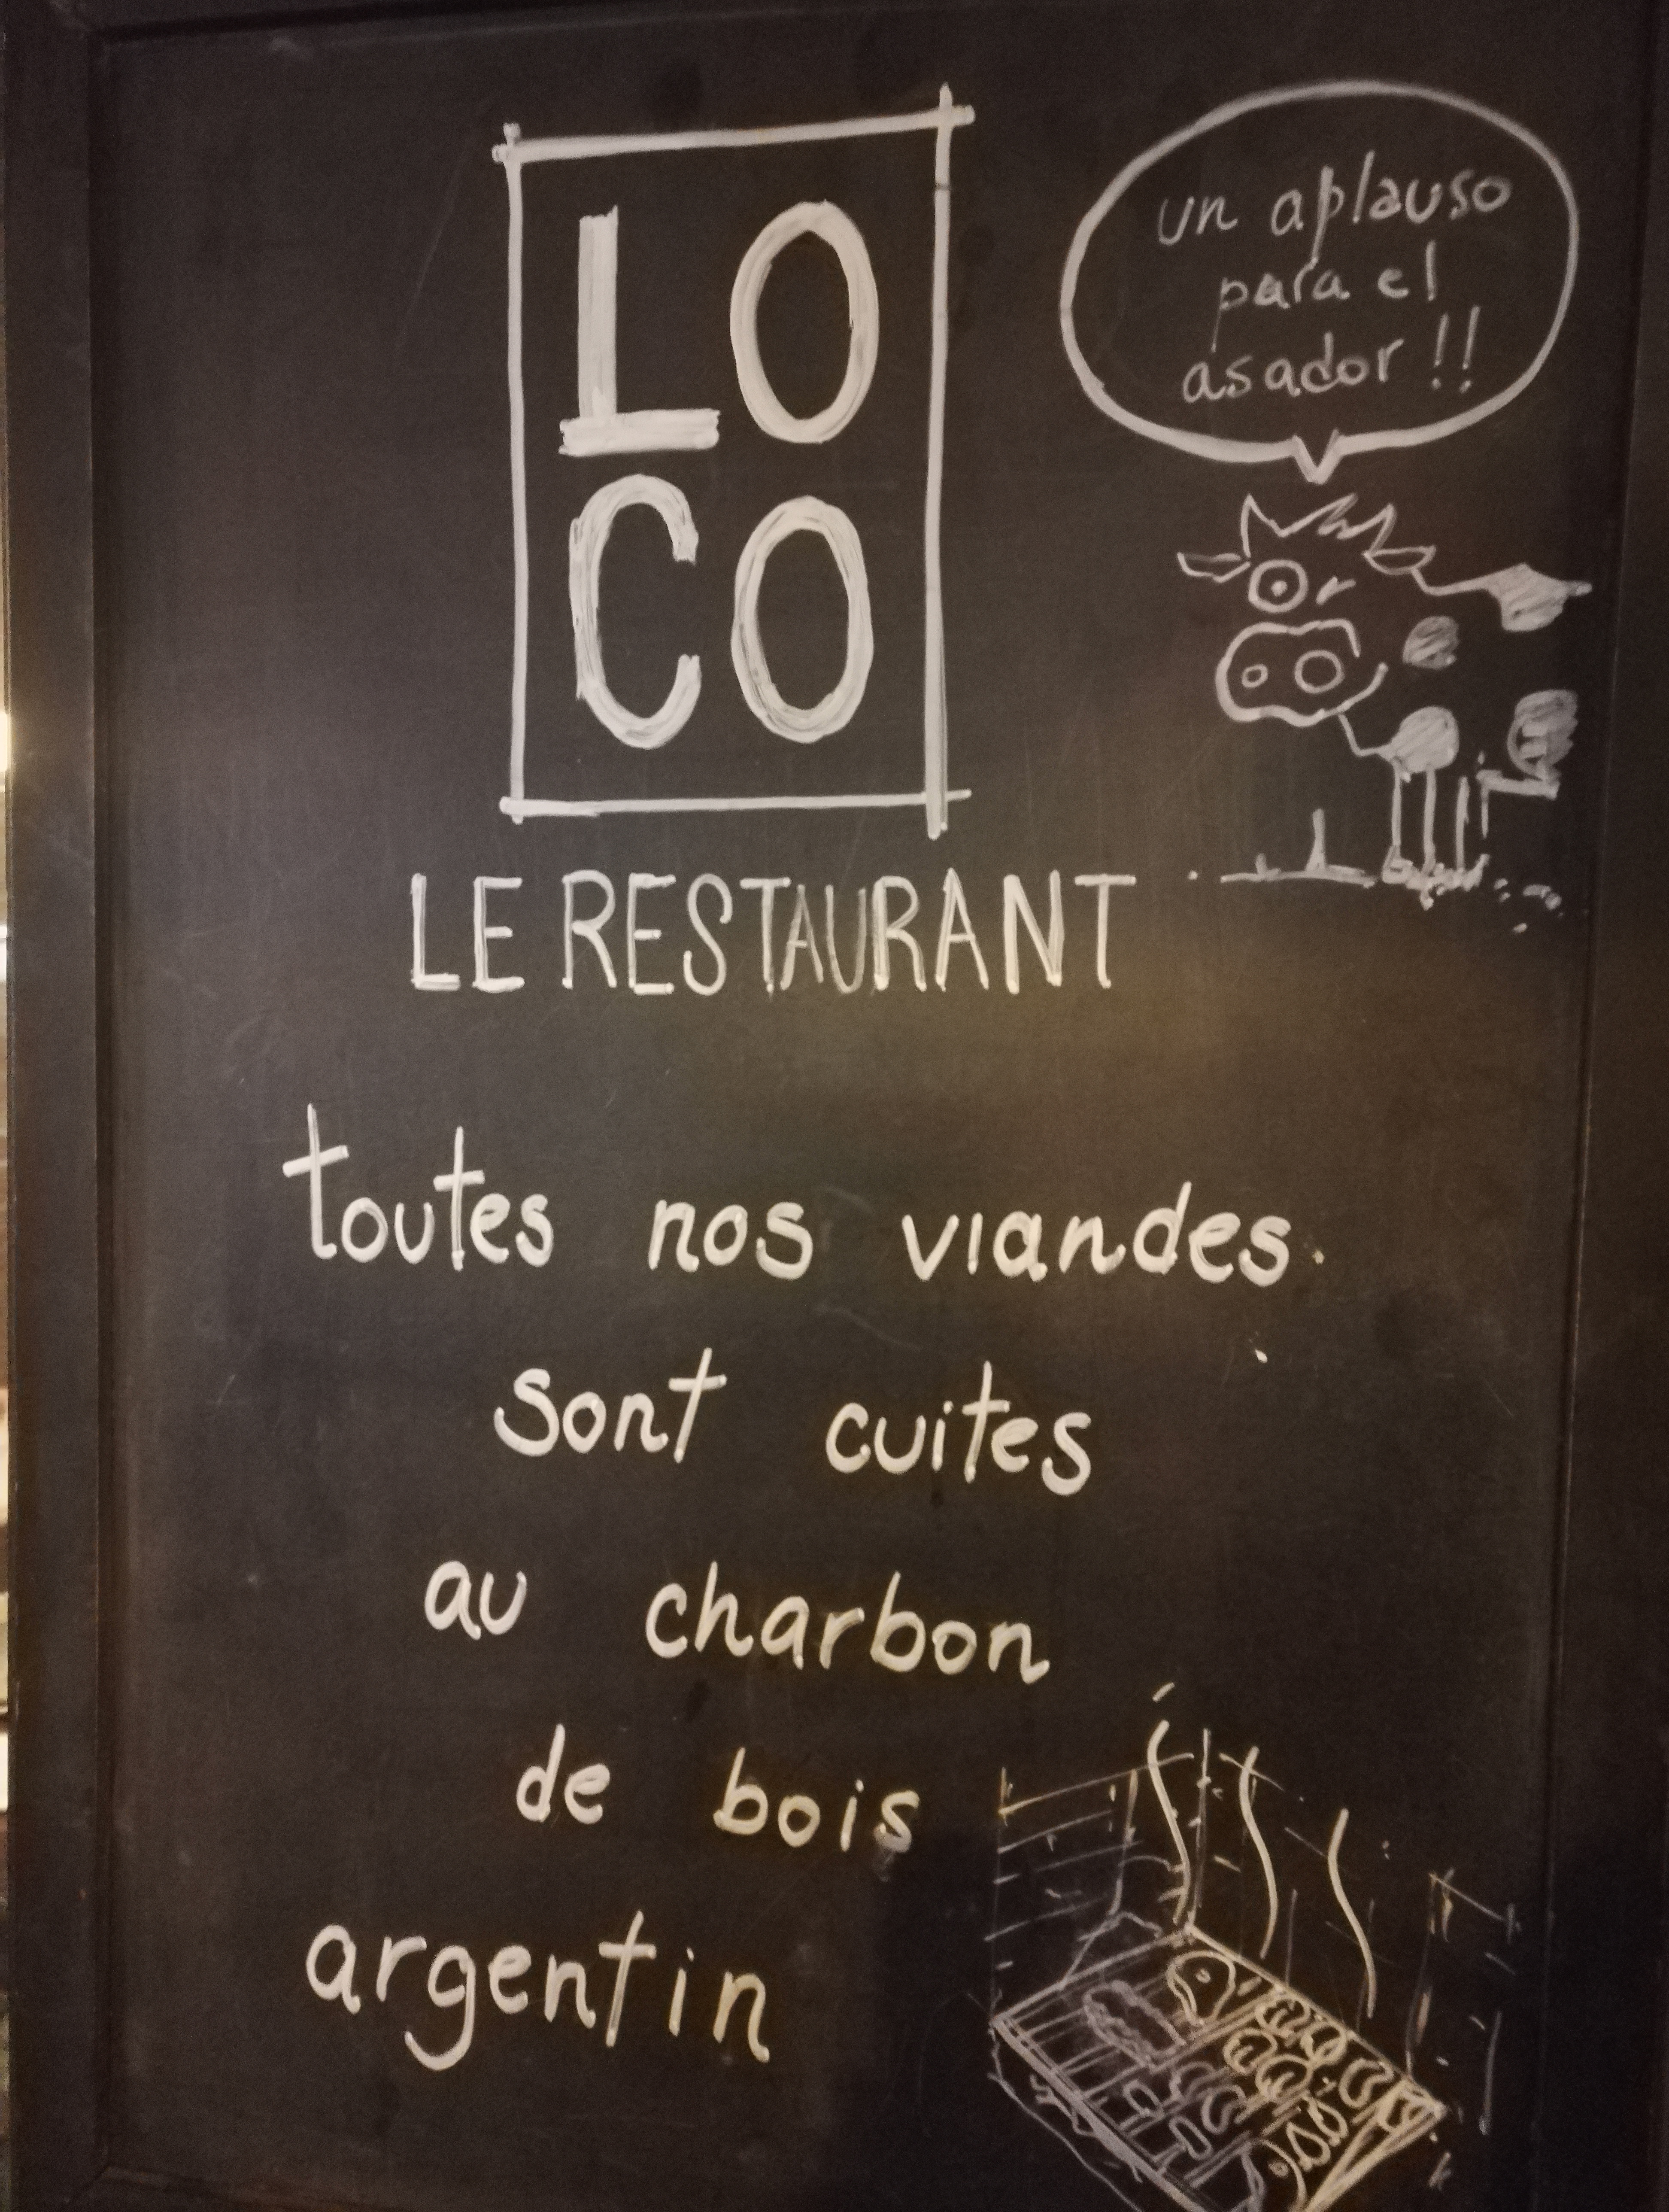 LO
CO
LE RESTAURANT
un aplauso
para el
asador !!
toutes nos viandes
sont cuites
au charbon
de bois
argentin